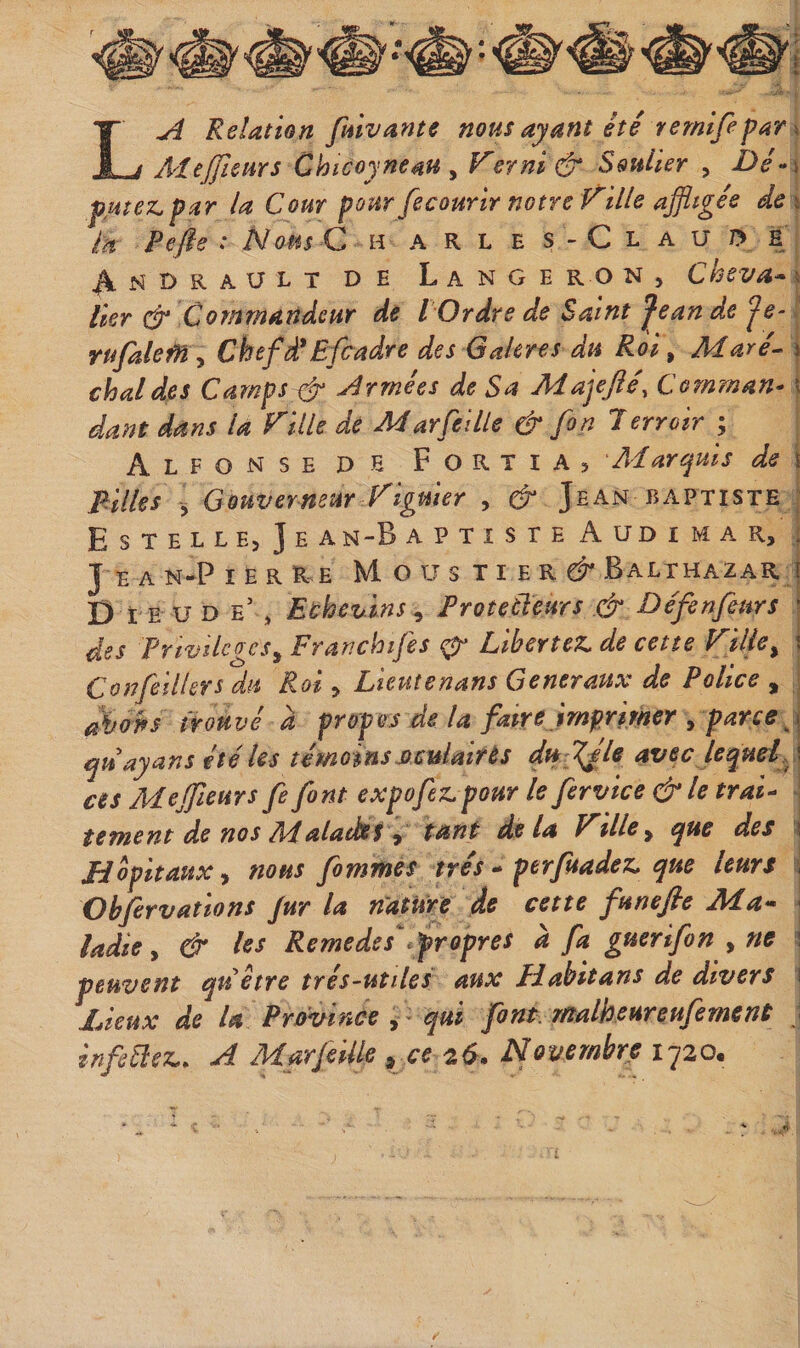 LA Relation ſuivante nous ayant été remiſe par
Meſſieurs Chicoyneau, Verni & Soulier, Dé-
putez par la Cour pour ſecourir notre Ville affligée de
la Peſte : Nous CHARLES-CLAUDE
ANDRAULT DE LANGERON, Cheva-
lier & Commandeur de l'Ordre de Saint Jean de Je-
ruſalem, Chef d'Eſcadre des Galeres du Roi, Maré-
chal des Camps & Armées de Sa Majeſté, Comman-
dant dans la Ville de Marſeille & ſon Terroir ;
ALFONSE DE FORTIA, Marquis de
Pilles, Gouverneur Viguier, & JEAN BAPTISTE
ESTELLE, JEAN-BAPTISTE AUDIMAR,
JEAN-PIERRE MOUSTIER & BALTHAZAR
DIEUDE', Echevins, Protecteurs & Défenſeurs
des Privileges, Franchiſes & Libertez de cette Ville,
Conſeillers du Roi, Lieutenans Generaux de Police,
avons trouvé à propos de la faire imprimer, parce
qu'ayans été les témoins oculaires du Zéle avec lequel
ces Meſſieurs ſe ſont expoſez pour le ſervice & le trai-
tement de nos Malades, tant de la Ville, que des
Hôpitaux, nous ſommes trés-perſuadez que leurs
Obſervations ſur la nature de cette funeſte Ma-
ladie, & les Remedes propres à ſa gueriſon, ne
peuvent qu'être trés-utiles aux Habitans de divers
Lieux de la Province, qui ſont malheureuſement
infectez. A Marſeille, ce 26. Novembre 1720.